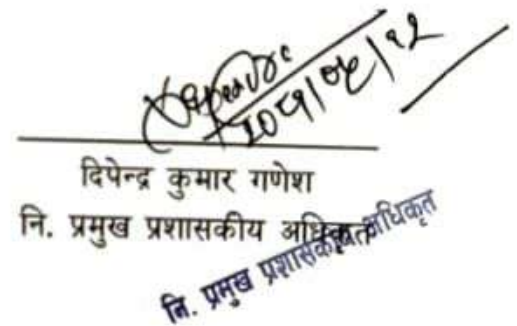 दिपेन्द्र कुमार गणेश
नि. प्रमुख प्रशासकीय अधिकृत
नि. प्रमुख प्रशासकीय अधिकृत